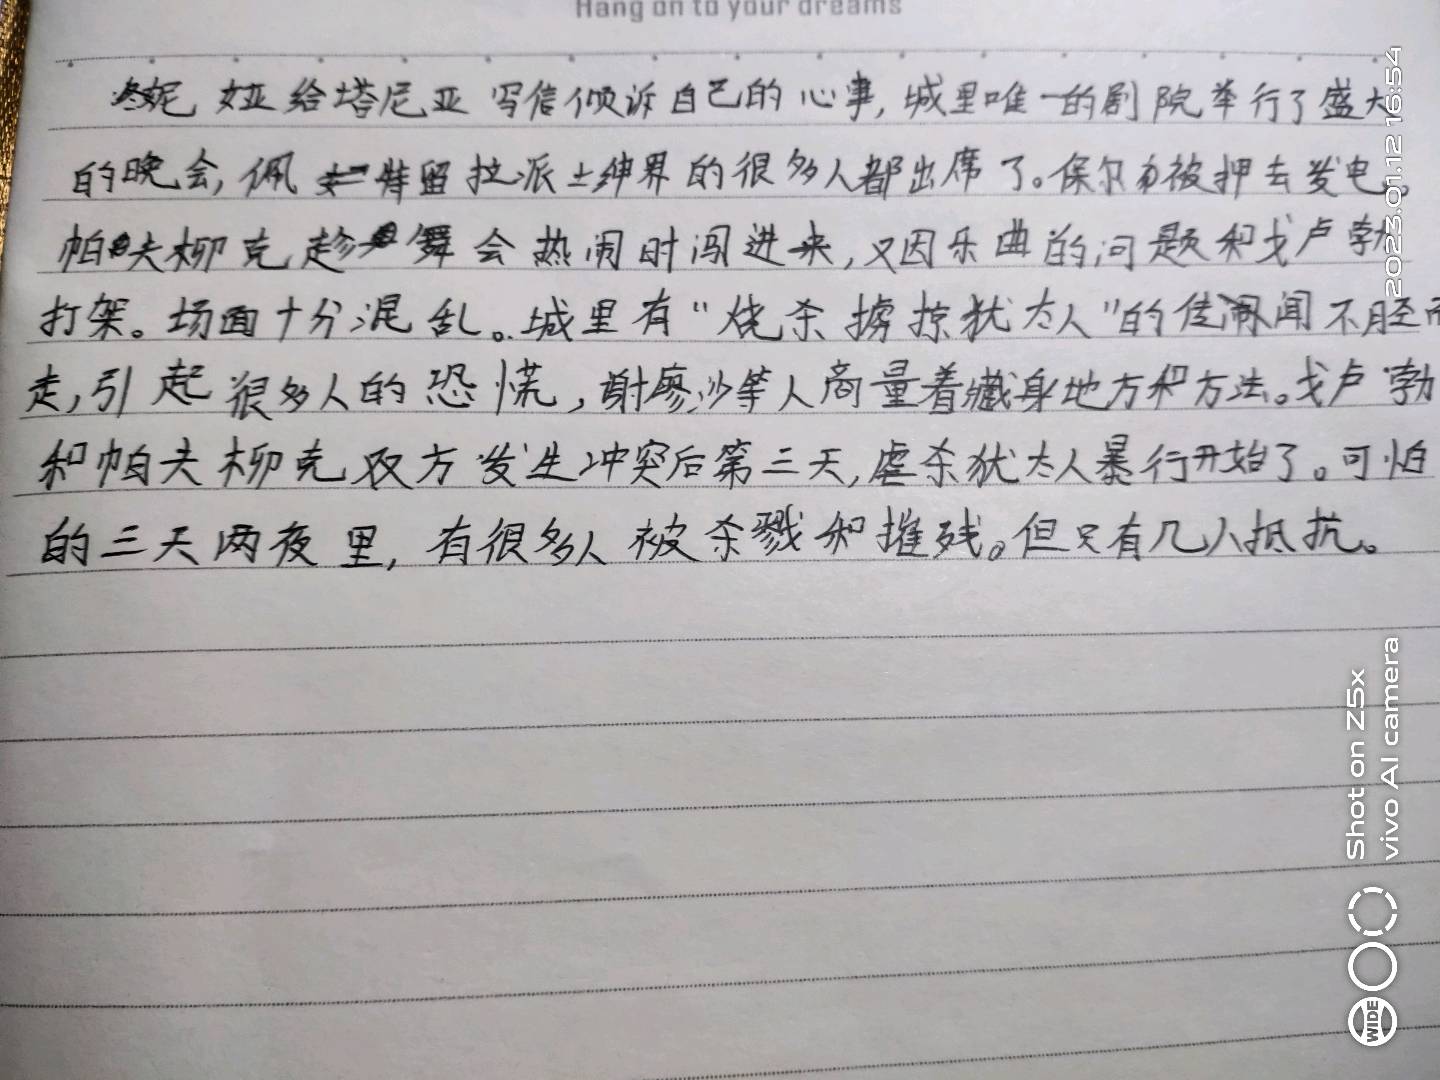 Hang on to your dreams
冬妮娅给塔尼亚写信倾诉自己的心事,城里唯一的剧院举行了盛大
的晚会,佩特留拉派士绅界的很多人都出席了。保尔也被押去发电。
帕夫柳克趁舞会热闹时闯进来,又因乐曲的问题和戈卢勃
打架。场面十分混乱。城里有“烧杀掳掠犹太人”的传闻不胫而
走,引起很多人的恐慌,谢廖沙等人商量着藏身地方和方法。戈卢勃
和帕夫柳克双方发生冲突后第三天,虐杀犹太人暴行开始了。可怕
的三天两夜里,有很多人被杀戮和摧残。但只有几人抵抗。
2023.01.12 16:54
Shot on Z5x
vivo AI camera
WIDE